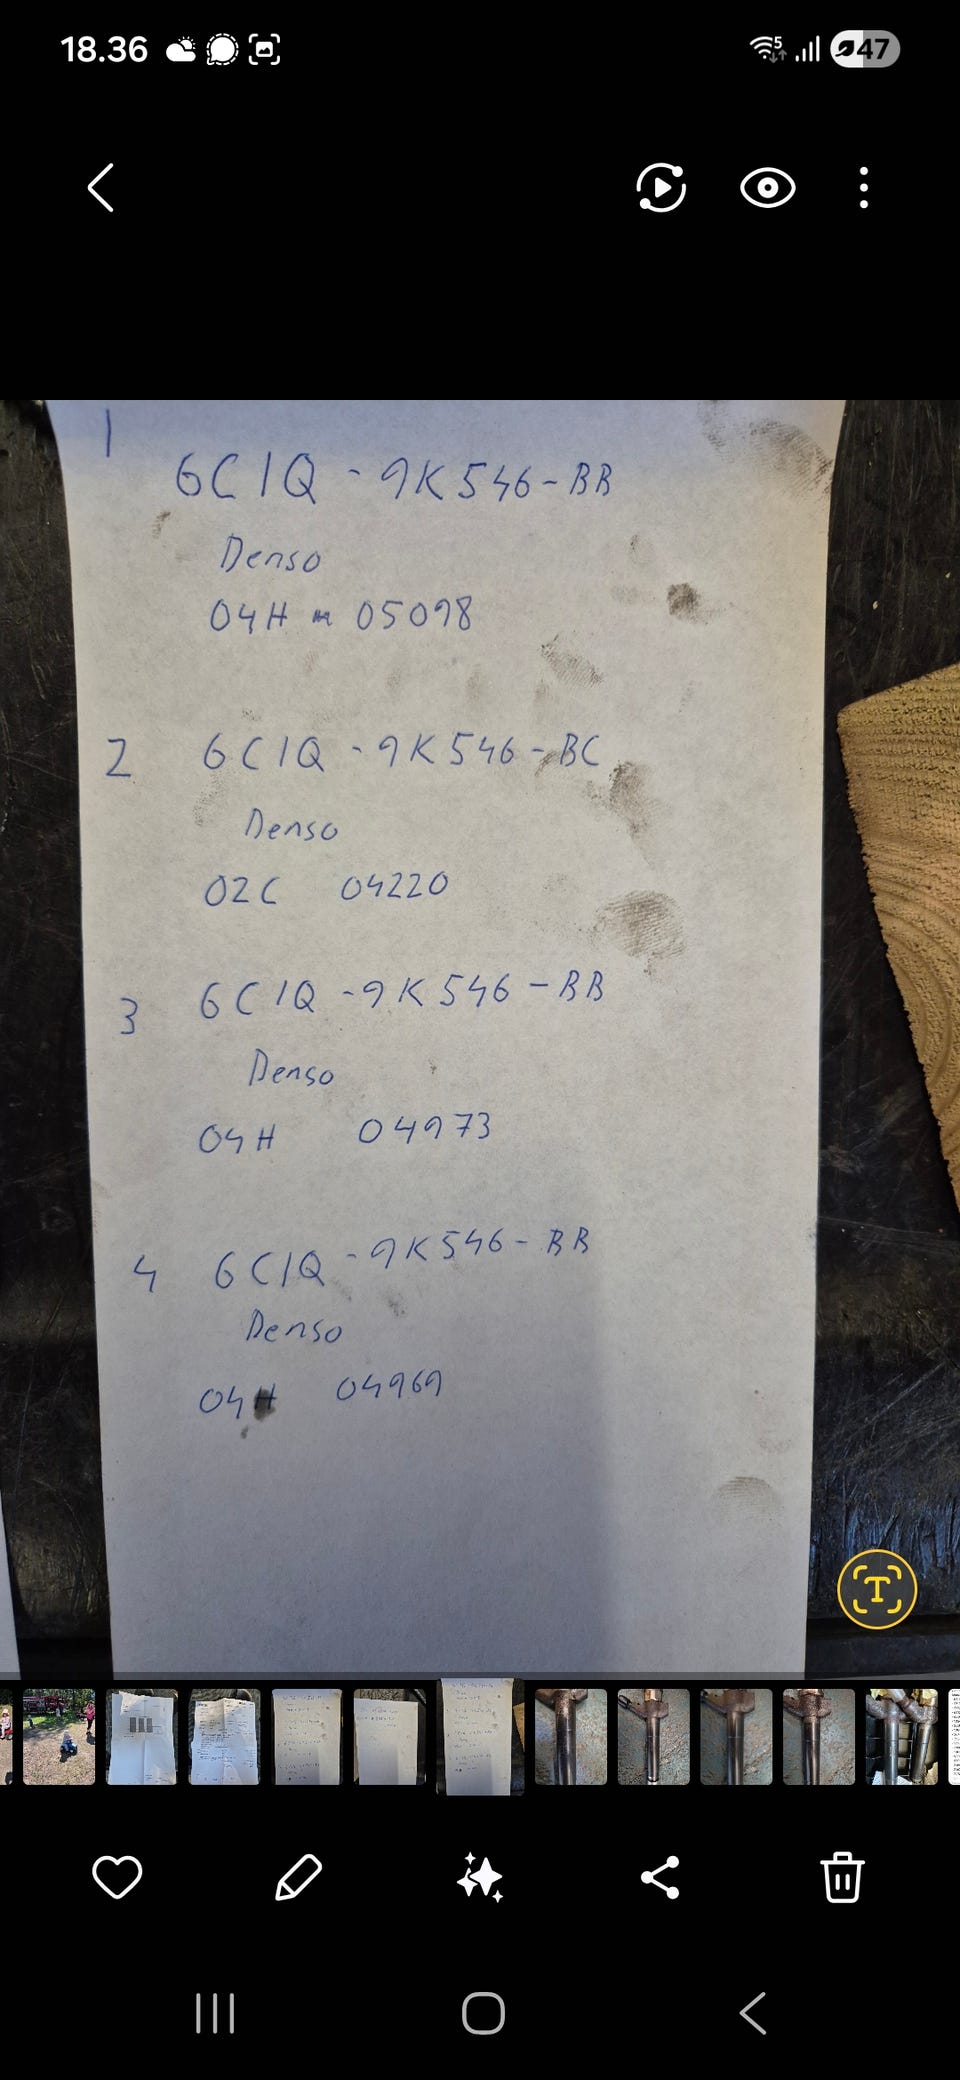 18.36
5
47
1
6C1Q - 9K546-BB
Denso
04H 05098
2 6C1Q - 9K546-BC
Denso
02C 04220
3 6C1Q - 9K546-BB
Denso
04H 04973
4 6C1Q - 9K546-BB
Denso
04H 04969
T